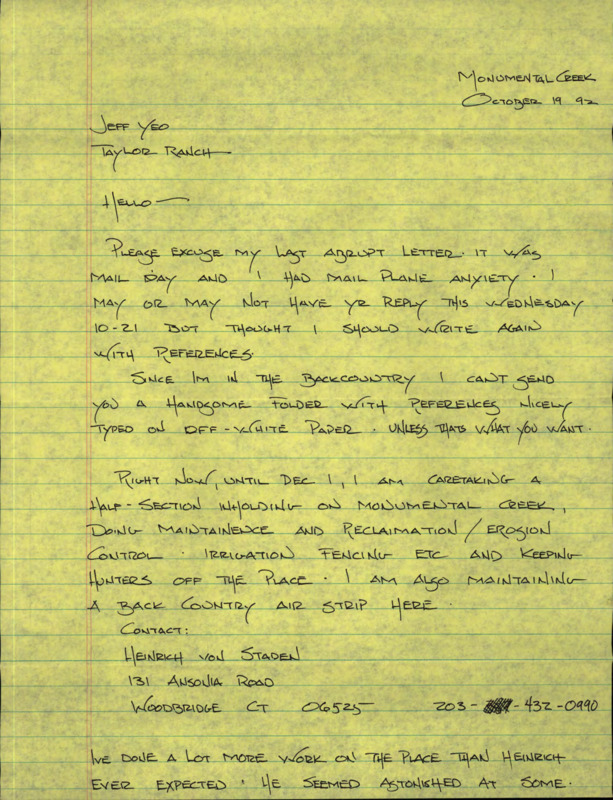 Monumental Creek
October 19 92
Jeff Yeo
Taylor Ranch
Hello —
Please excuse my last abrupt letter. It was
mail day and I had mail plane anxiety. I
may or may not have yr reply this Wednesday
10-21 but thought I should write again
with references.
Since Im in the backcountry I cant send
you a handsome folder with references nicely
typed on off-white paper. Unless thats what you want.
Right now, until Dec 1, I am caretaking a
half-section inholding on Monumental Creek,
doing maintainence and reclaimation/erosion
control. Irrigation fencing etc and keeping
hunters off the place. I am also maintaining
a back country air strip here.
Contact:
Heinrich von Staden
131 Ansonia Road
Woodbridge CT 06525 203- -432-0990
Ive done a lot more work on the place than Heinrich
ever expected. He seemed astonished at some.